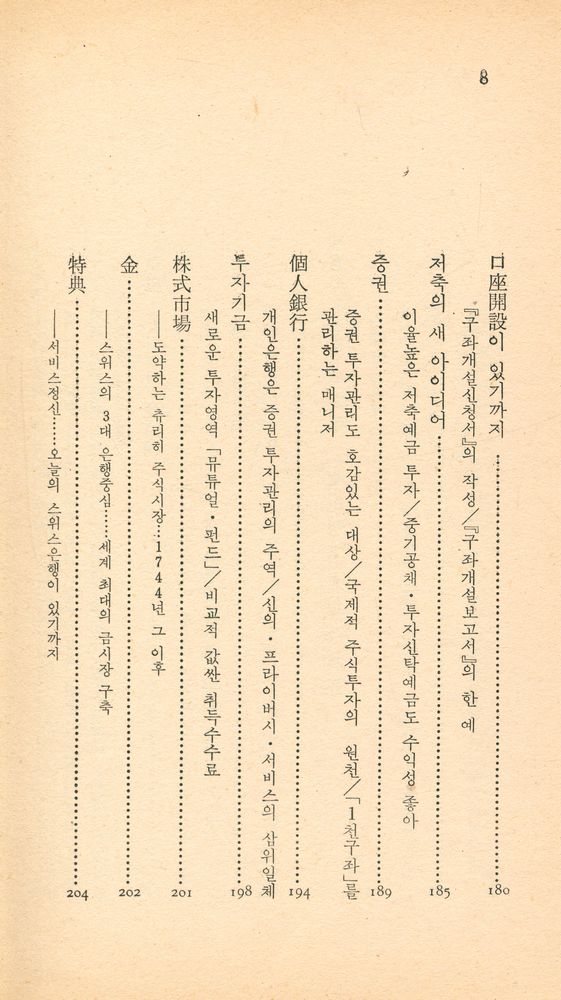 8
口座開設이 있기까지 ………… 180
『구좌개설신청서』의 작성/『구좌개설보고서』의 한 예
저축의 새 아이디어 ………… 185
이율높은 저축예금 투자/중기공채・투자신탁예금도 수익성 좋아
증권 ………… 189
증권 투자관리도 호감있는 대상/국제적 주식투자의 원천/「1천구좌」를
관리하는 매니저
個人銀行 ………… 194
개인은행은 증권 투자관리의 주역/신의・프라이버시・서비스의 삼위일체
투자기금 ………… 198
새로운 투자영역 「뮤튜얼・펀드」/비교적 값싼 취득수수료
株式市場 ………… 201
──도약하는 츄리히 주식시장…1744년 그 이후
金 ………… 202
──스위스의 3대 은행중심……세계 최대의 금시장 구축
特典 ………… 204
──서비스정신……오늘의 스위스은행이 있기까지